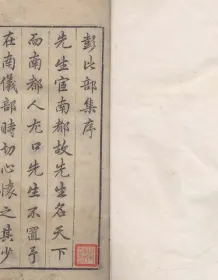 彭比部集序
先生宦南都故先生名天下
而南都人尤口先生不置予
在南儀部時切心懷之其少